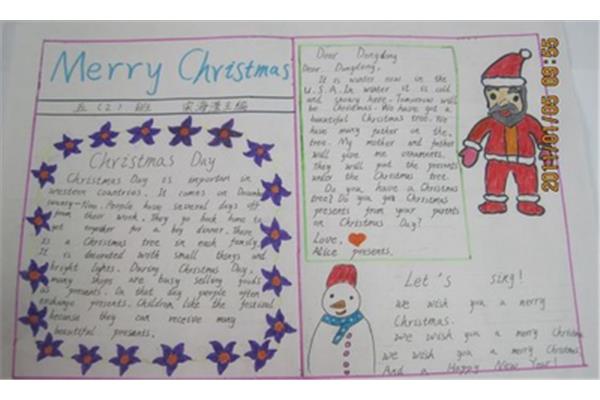 Merry Christmas
五(2)班 宋海潼主编
Christmas Day
Christmas Day is important in
western countries. It comes on December
twenty-five. People have several days off
from their work. They go back home to
get together for a big dinner. There
is a Christmas tree in each family.
It is decorated with small things and
bright lights. During Christmas Day,
many shops are busy selling goods
as presents. On that day people often
exchange presents. Children like the festival
because they can receive many
beautiful presents.
Dear Dongdong
Dear Dongdong,
It is winter now in the
U.S.A. In winter it is cold
and snowy here. Tomorrow will
be Christmas. We have got a
beautiful Christmas tree. We
have many father on the
tree. My mother and father
will give me ornaments.
they will put the presents
under the Christmas tree.
Do you have a Christmas
tree? Do you get Christmas
presents from your parents
on Christmas Day?
Love,
Alice presents.
Let's sing!
We wish you a merry
Christmas.
We wish you a merry Christmas
We wish you a merry Christmas
And a Happy New Year!
2011/01/05 09:55